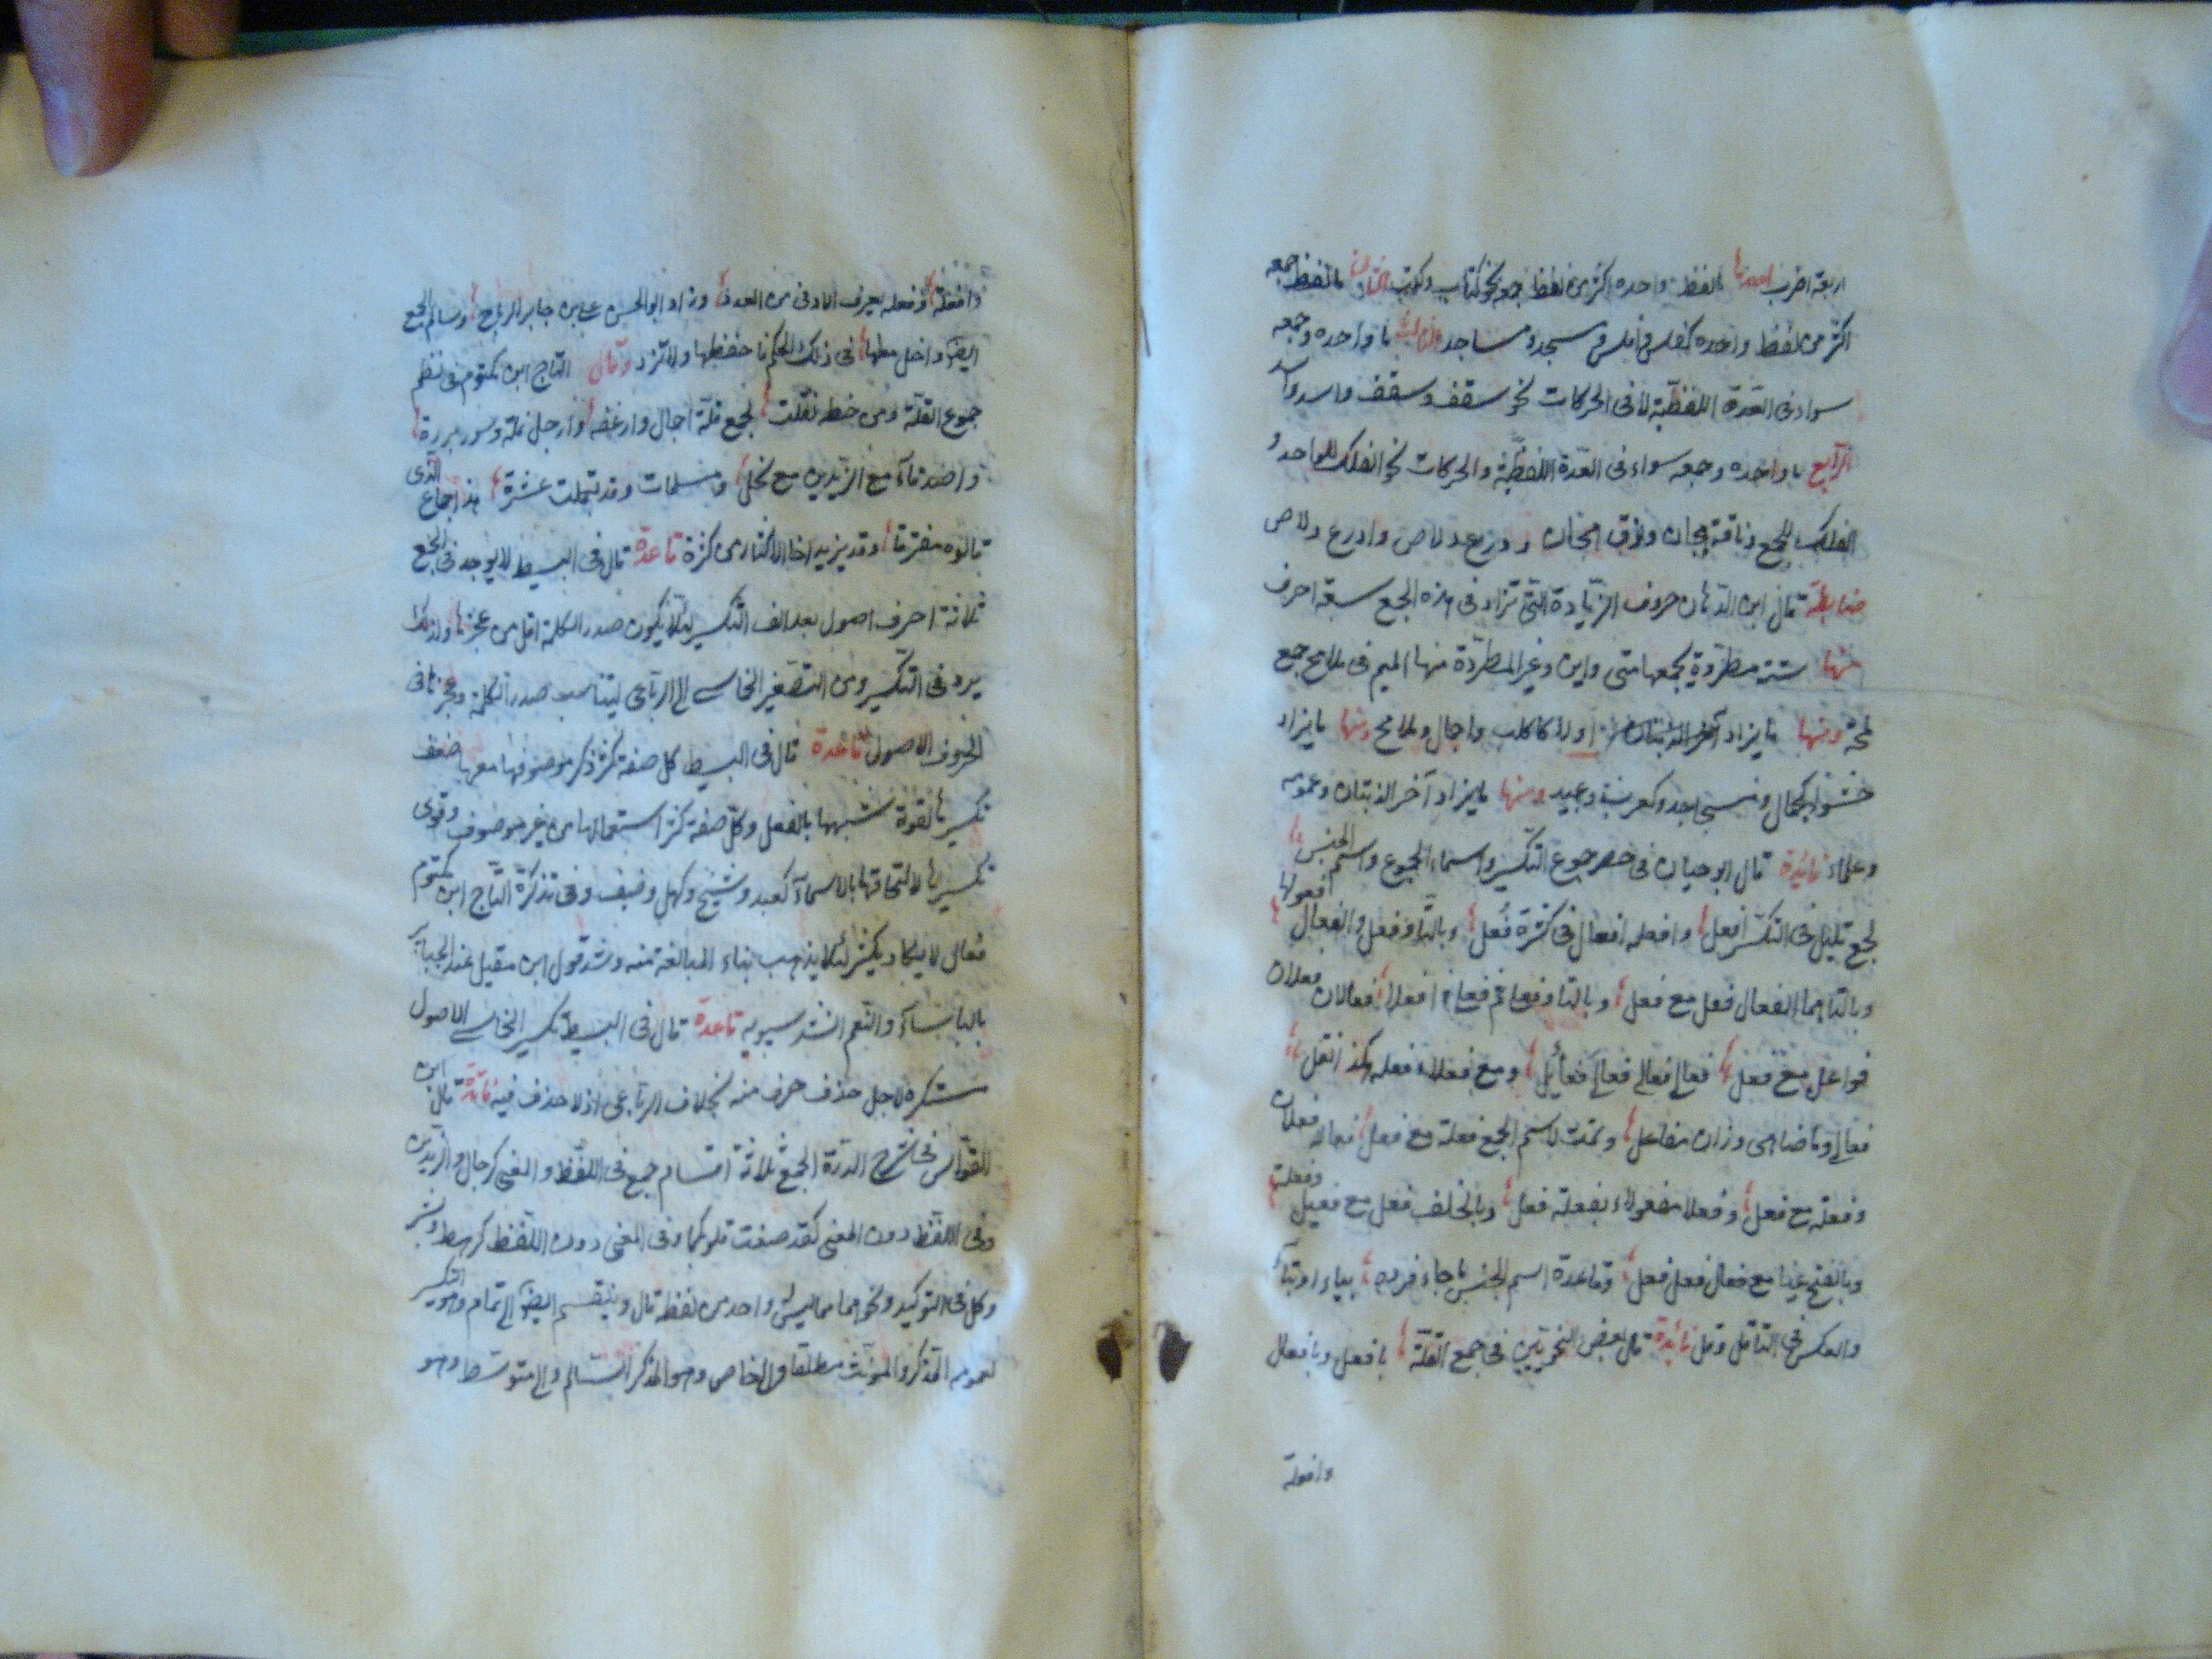 اربعة اضرب احدها ما لفظ واحده اكثر من لفظ جمعه نحو كتاب وكتب الثاني ما لفظ جمعه
اكثر من لفظ واحده كفلس وافلس ومسجد ومساجد الثالث ما واحده وجمعه
سواء في العدة اللفظية لا في الحركات نحو سقف وسقف واسد واسد
الرابع ما واحده وجمعه سواء في العدة اللفظية والحركات نحو الفلك للواحد و
الفلك للجمع وناقة هجان ونوق هجان ودرع دلاص وادرع دلاص
ضابطة قال ابن الدهان حروف الزيادة التي تزاد في هذه الجمع سبعة احرف
منها ستة مطردة يجمعها متى واين وغير المطردة منها الميم في ملامح جمع
لمحة ومنها ما يزاد اولا كاكلب واجمال وملامح ومنها ما يزاد
حشوا كجمال ومساجد وكعوب وعبيد ومنها ما يزاد آخرا كذبان وعمومة
وعلماء فائدة قال ابو حيان في حصر جموع التكسير واسماء الجموع واسم الجنس
لجمع قليل في التكسر افعل وافعلة افعال في كثرة فعل وبالتا وفعل والفعال افعولها
وبالتا هما الفعال فعل مع فعل وبالتا وفعلى ثم فعلى افعلا فعالان فعلان
فواعل مع فعل فعالى فعالي فعالى فعائل ومع فعلاء فعلة هكذا نقل
فعالي وما ضاهى وزان مفاعل وتمت لاسم الجمع فعلة مع فعل فعالة فعلان
وفعلة مع فعل وفعلا مفعولاء بفعلة فعل وبالخلف فعل مع فعيل وفعلة
وبالفتح عينا مع فعال فعل فعل وقاعدة اسم الجنس ما جاء فرده بياء او بتاء
والعكس في التا قل وقل فائدة قال بعض النحويين في جمع القلة بافعل وبافعال
وافعلة
وافعلة وفعلة يعرف الادنى من العدد وزاد ابو الحسن علي بن جابر الدباج وسالم الجمع
ايضا داخل معها في ذلك الحكم فاحفظها ولا تزد وقال التاج ابن مكتوم في نظم
جموع القلة ومن خطه نقلت لجمع قلة اجمال وارغفة وارجل غلمة وسور بررة
واصدقاء مع الزيدين مع نحل ومسلمات وقد تكملت عشرة هذا جماع الذي
قالوه مفترقا وقد يزيد اخا الاكثار من كثرة قاعدة قال في البسيط لا يوجد في الجمع
ثلاثة احرف اصول بعد الف التكسير لئلا يكون صدر الكلمة اقل من عجزها ولذلك
يرد في التكسير ومن التصغير الخماسي الى الرباعي ليتناسب صدر الكلمة وعجزها في
الحروف الاصول قاعدة قال في البسيط كل صفة كثر ذكر موصوفها معها ضعف
تكسيرها لقوة شبهها بالفعل وكل صفة كثر استعمالها من غير موصوف وقوى
تكسيرها لالتحاقها بالاسماء كعبد وشيخ وكهل وضيف وفي تذكرة التاج ابن مكتوم
فعال لا يكاد يكسر لئلا يذهب بناء المبالغة منه وشذ قول ابن مقبل عند الجبابر
بالباساء والنعم انشد سيبويه قاعدة قال في البسيط تكسير الخماسي الاصول
مستكره لاجل حذف حرف منه بخلاف الرباعي اذ لا حذف فيه فائدة قال ابن
القواس في شرح الدرة الجمع ثلاثة اقسام جمع في اللفظ والمعنى كرجال والزيدين
وفي اللفظ دون المعنى كقد صغت قلوبكما وفي المعنى دون اللفظ كرهط وبشر
وكل في التوكيد ونحوهما مما ليس له واحد من لفظه قال وينقسم ايضا الى تمام وهو التكسير
لعمومه المذكر والمونث مطلقا والى خاص وهو المذكر السالم والى متوسط وهو